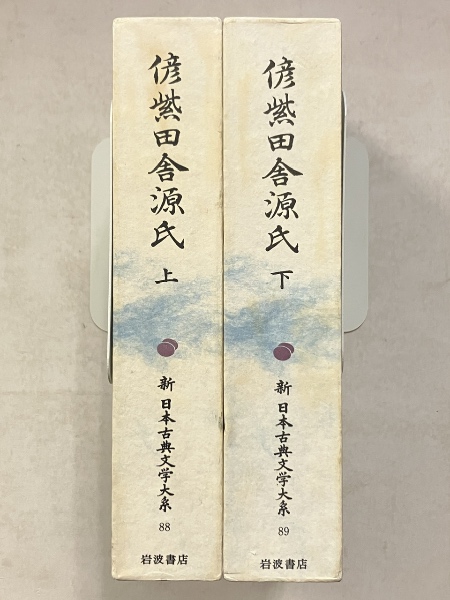 偐紫田舎源氏 上
新 日本古典文学大系
88
岩波書店
偐紫田舎源氏 下
新 日本古典文学大系
89
岩波書店